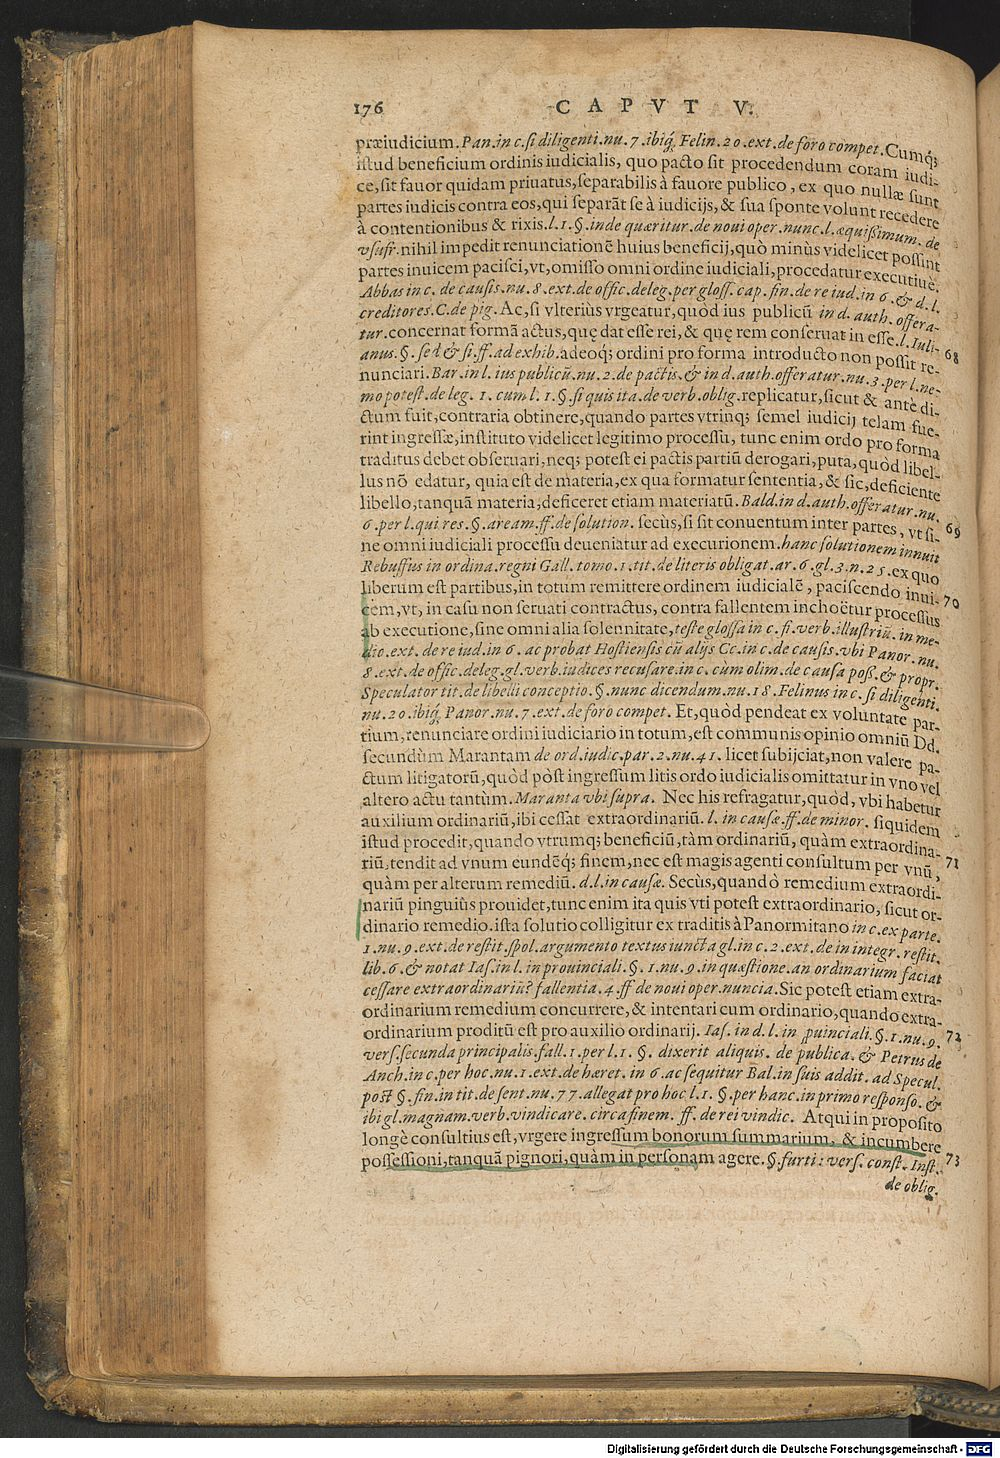 176 CAPVT V.
præiudicium. Pan. in c. si diligenti. nu. 7. ibiq́; Felin. 20. ext. de foro compet. Cumq́;
istud beneficium ordinis iudicialis, quo pacto sit procedendum coram iudi-
ce, sit fauor quidam priuatus, separabilis à fauore publico, ex quo nullæ sunt
partes iudicis contra eos, qui separãt se à iudicijs, & sua sponte volunt recedere
à contentionibus & rixis. l. 1. §. inde quæritur. de noui oper. nunc. l. æquißimum. de
vsufr. nihil impedit renunciationẽ huius beneficij, quò minùs videlicet possint
partes inuicem pacisci, vt, omisso omni ordine iudiciali, procedatur executiuè.
Abbas in c. de causis. nu. 8. ext. de offic. deleg. per gloss. cap. fin. de re iud. in 6. & d. l.
creditores. C. de pig. Ac, si vlterius vrgeatur, quòd ius publicũ in d. auth. offera-
tur. concernat formã actus, quę dat esse rei, & quę rem conseruat in esse. l. Iuli- 68
anus. §. sed & si. ff. ad exhib. adeoq́; ordini pro forma introducto non possit re-
nunciari. Bar. in l. ius publicũ. nu. 2. de pactis. & in d. auth. offeratur. nu. 3. per l. ne-
mo potest. de leg. 1. cum l. 1. §. si quis ita. de verb. oblig. replicatur, sicut & antè di-
ctum fuit, contraria obtinere, quando partes vtrinq; semel iudicij telam fue-
rint ingressæ, instituto videlicet legitimo processu, tunc enim ordo pro forma
traditus debet obseruari, neq; potest ei pactis partiũ derogari, puta, quòd libel-
lus nõ edatur, quia est de materia, ex qua formatur sententia, & sic, deficiente
libello, tanquã materia, deficeret etiam materiatũ. Bald. in d. auth. offeratur. nu.
6. per l. qui res. §. aream. ff. de solution. secùs, si sit conuentum inter partes, vt si- 69
ne omni iudiciali processu deueniatur ad executionem. hanc solutionem innuit
Rebuffus in ordina. regni Gall. tomo. 1. tit. de literis obligat. ar. 6. gl. 3. n. 25. ex quo
liberum est partibus, in totum remittere ordinem iudicialẽ, paciscendo inui- 70
cem, vt, in casu non seruati contractus, contra fallentem inchoëtur processus
ab executione, sine omni alia solennitate, teste glossa in c. fi. verb. illustriũ. in me-
dio. ext. de re iud. in 6. ac probat Hostiensis cũ alijs Cc. in c. de causis. vbi Panor. nu.
8. ext. de offic. deleg. gl. verb. iudices recusare. in c. cùm olim. de causa poß. & propr.
Speculator tit. de libelli conceptio. §. nunc dicendum. nu. 18. Felinus in c. si diligenti.
nu. 20. ibiq́; Panor. nu. 7. ext. de foro compet. Et, quòd pendeat ex voluntate par-
tium, renunciare ordini iudiciario in totum, est communis opinio omniũ Dd.
secundùm Marantam de ord. iudic. par. 2. nu. 41. licet subijciat, non valere pa-
ctum litigatorũ, quòd pòst ingressum litis ordo iudicialis omittatur in vno vel
altero actu tantùm. Maranta vbi supra. Nec his refragatur, quòd, vbi habetur
auxilium ordinariũ, ibi cessat extraordinariũ. l. in causæ. ff. de minor. siquidem
istud procedit, quando vtrumq; beneficiũ, tàm ordinariũ, quàm extraordina-
riũ, tendit ad vnum eundẽq; finem, nec est magis agenti consultum per vnũ, 71
quàm per alterum remediũ. d. l. in causæ. Secùs, quandò remedium extraordi-
nariũ pinguiùs prouidet, tunc enim ita quis vti potest extraordinario, sicut or-
dinario remedio. ista solutio colligitur ex traditis à Panormitano in c. ex parte.
1. nu. 9. ext. de restit. spol. argumento textus iuncta gl. in c. 2. ext. de in integr. restit.
lib. 6. & notat Ias. in l. in prouinciali. §. 1. nu. 9. in quæstione. an ordinarium faciat
cessare extraordinariũ? fallentia. 4. ff. de noui oper. nuncia. Sic potest etiam extra-
ordinarium remedium concurrere, & intentari cum ordinario, quando extra-
ordinarium proditũ est pro auxilio ordinarij. Ias. in d. l. in ꝓuinciali. §. 1. nu. 9. 72
vers. secunda principalis. fall. 1. per l. 1. §. dixerit aliquis. de publica. & Petrus de
Anch. in c. per hoc. nu. 1. ext. de hæret. in 6. ac sequitur Bal. in suis addit. ad Specul.
post §. fin. in tit. de sent. nu. 77. allegat pro hoc l. 1. §. per hanc. in primo responso. &
ibi gl. magnam. verb. vindicare. circa finem. ff. de rei vindic. Atqui in proposito
longè consultius est, vrgere ingressum bonorum summarium, & incumbere
possessioni, tanquã pignori, quàm in personam agere. §. furti: vers. const. Inst. 73
de oblig.
Digitalisierung gefördert durch die Deutsche Forschungsgemeinschaft - DFG